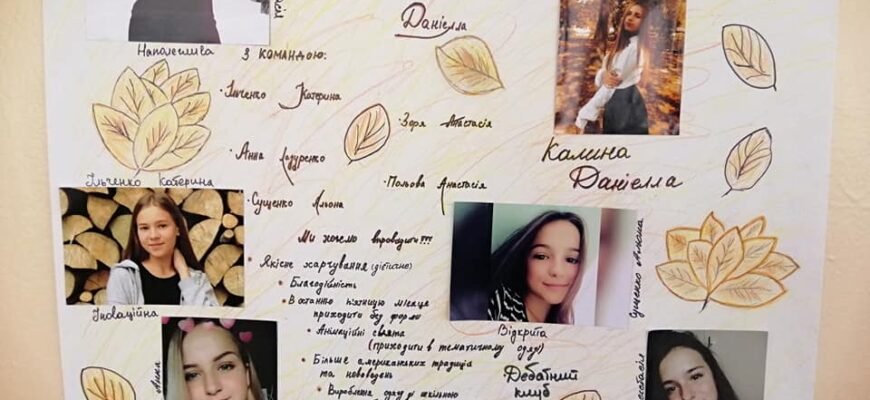 Даніелла
Наполеглива
З КОМАНДОЮ:
· Ільченко Катерина
· Зоря Анастасія
· Анна Лазуренко
· Польова Анастасія
· Сущенко Альона
Калина
Даніелла
Ільченко Катерина
Ми хочемо впровадити!!!
Якісне харчування (дієтичне)
Благодійність
В останню п'ятницю місяця
приходити без форми
Анімаційні свята
(приходити в тематичному одязі)
Більше американських традицій
та нововедень
Вироблення одягу зі шкільною
Іноваційна
Відкрита
Сущенко Альона
Дебатний
клуб
Анна